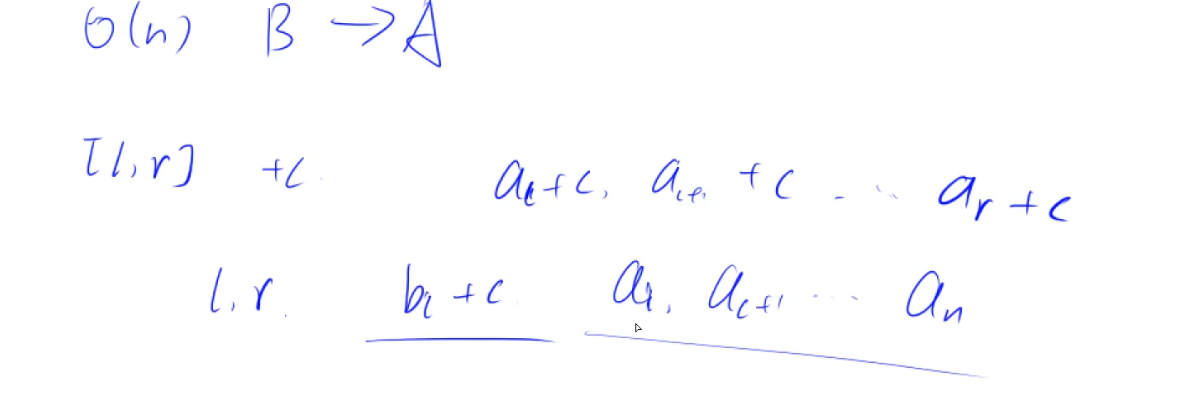 O(n) B → A
[l,r] +c a_l+c, a_{l+1} +c - ·· a_r +c
l,r. b_l +c a_l, a_{l+1} ... a_n